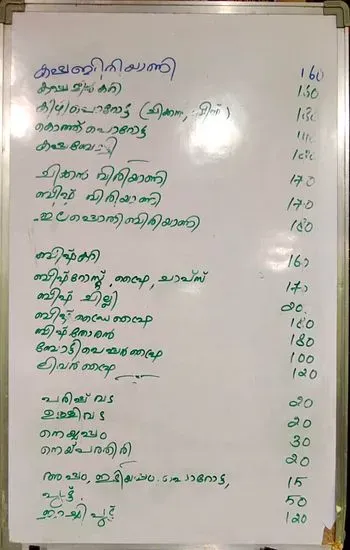 കപ്പബിരിയാണി 160
കപ്പ മീൻകറി 150
കിഴിപൊറോട്ട (ചിക്കൻ, ബീഫ്) 180
കൊത്ത് പൊറോട്ട
കപ്പബോട്ടി
ചിക്കൻ ബിരിയാണി 170
ബീഫ് ബിരിയാണി 170
ഇലപ്പൊതിബിരിയാണി 180
ബീഫ്കറി 160
ബീഫ്റോസ്റ്റ്, ഫ്രൈ, ചാപ്സ് 170
ബീഫ് ചില്ലി
ബീഫ് ഡ്രൈഫ്രൈ 180
ബീഫ്തോരൻ 180
ബോട്ടിപെപ്പർഫ്രൈ 100
ലിവർ ഫ്രൈ 120
പരിപ്പ് വട 20
ഉള്ളിവട 20
നെയ്യപ്പം 30
നെയ്പത്തിരി 20
അപ്പം, ഇടിയപ്പം, പൊറോട്ട, 15
പുട്ട്. 50
ഇറച്ചി പുട്ട് 120